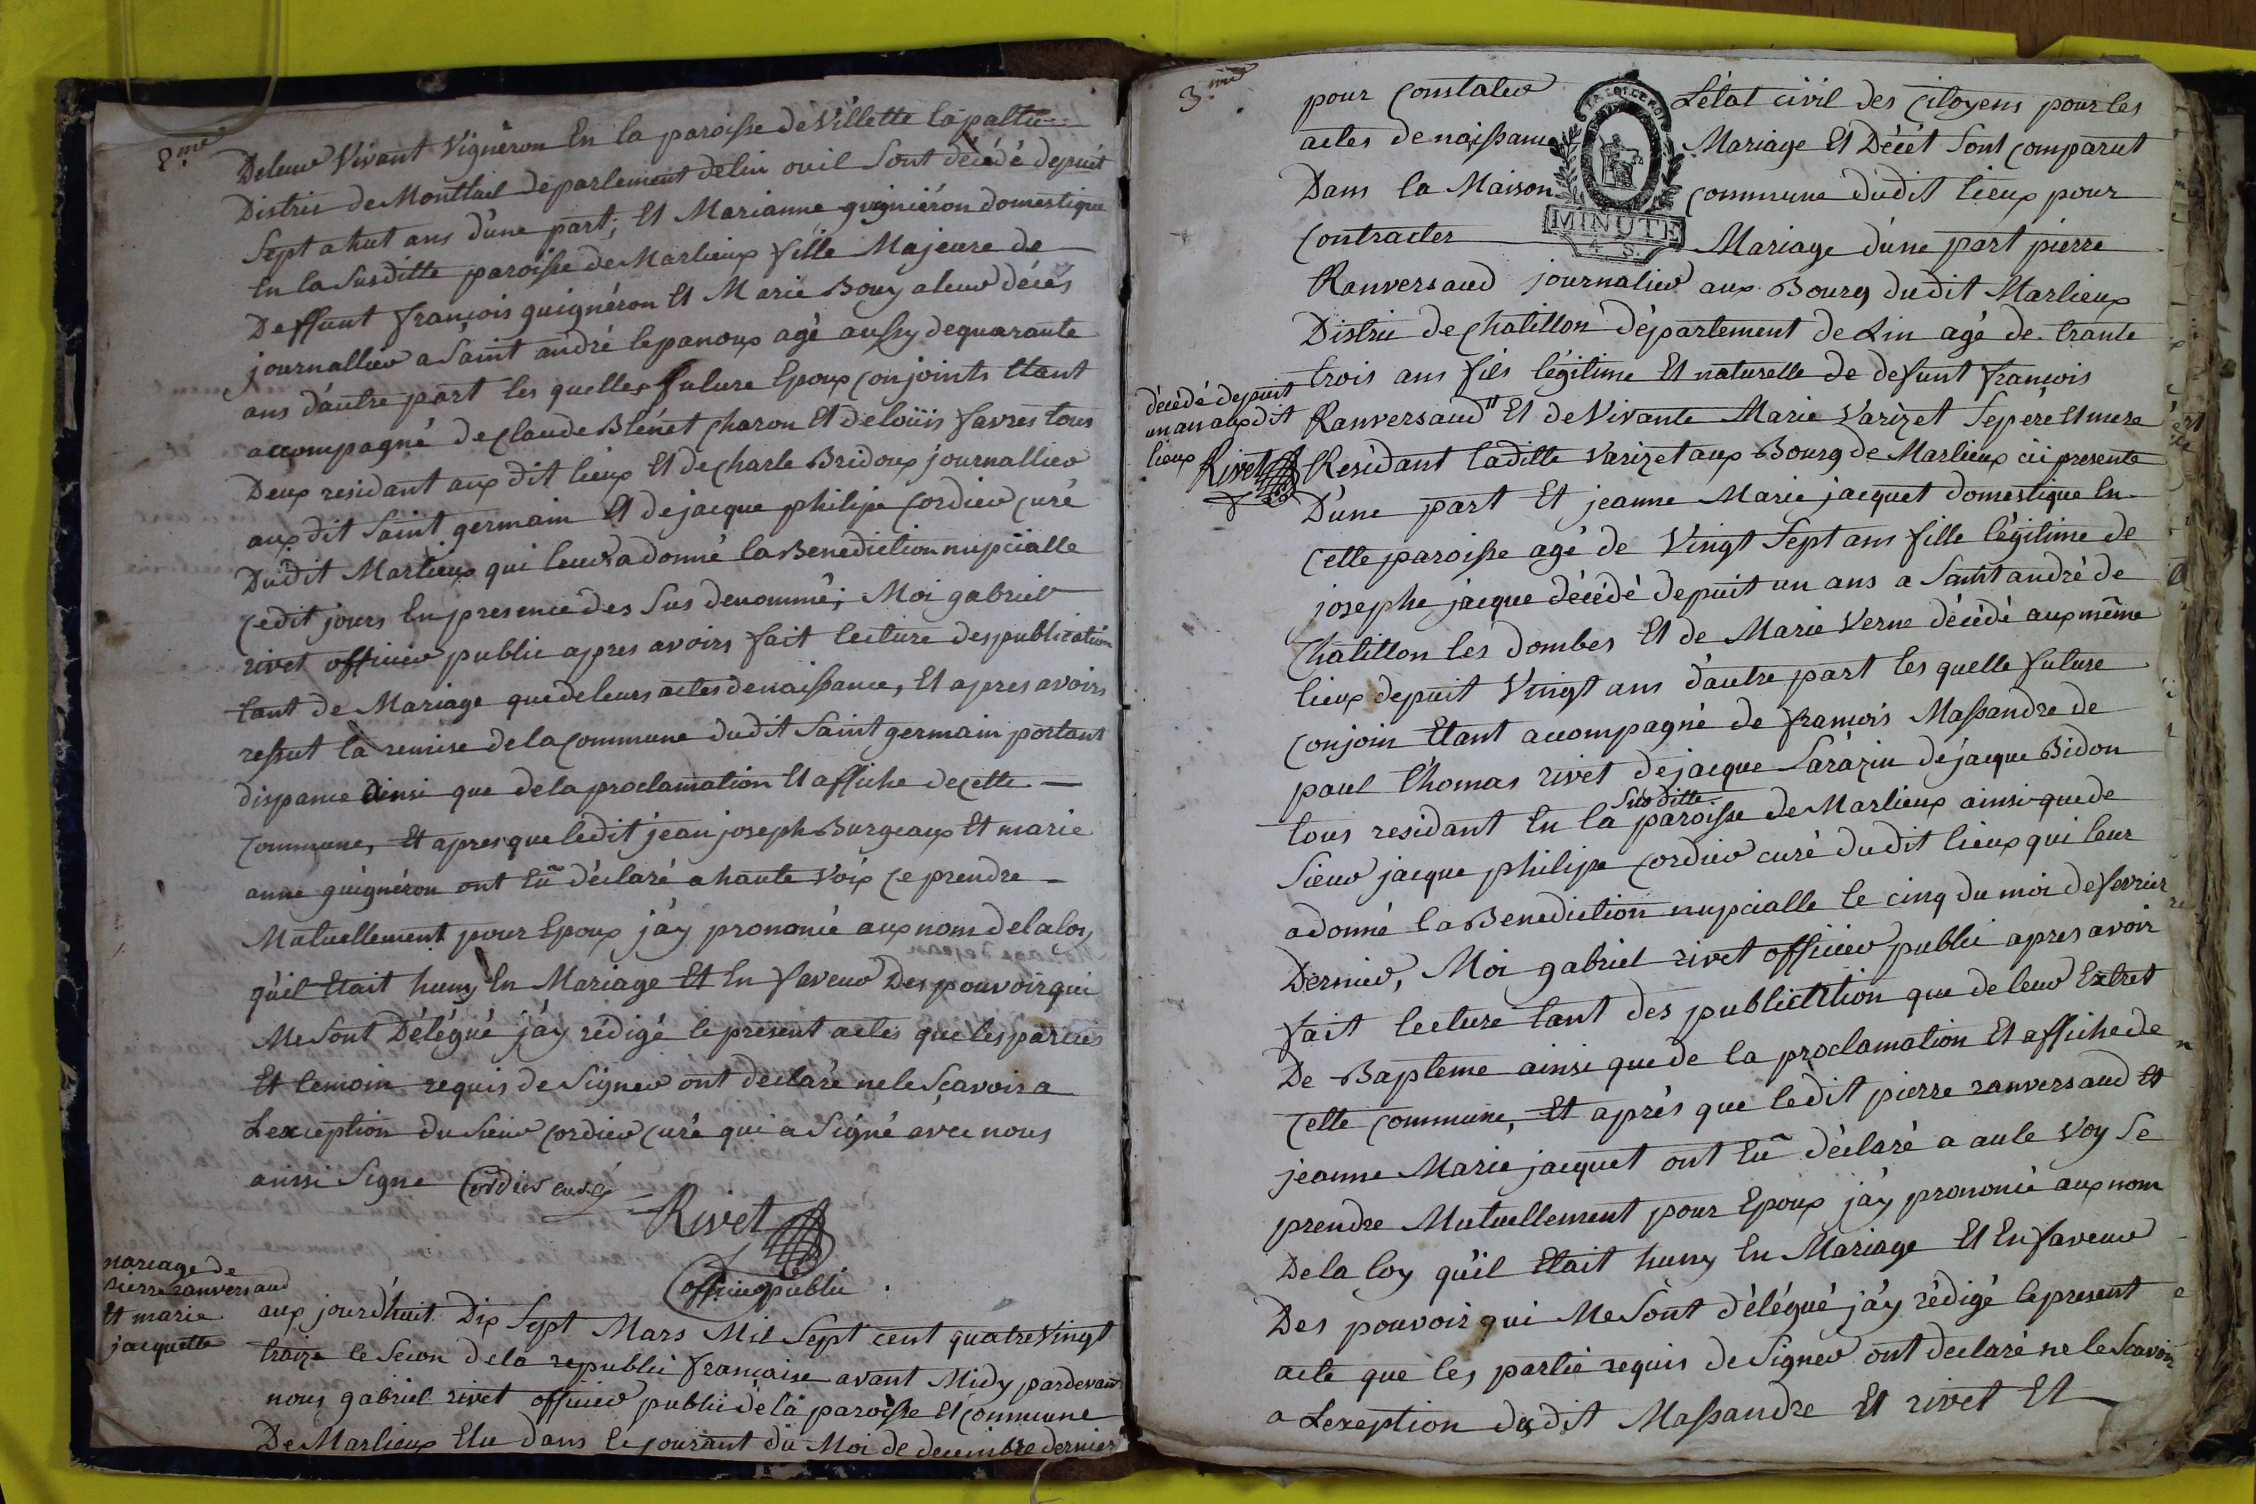 2.me
Deleur Vivant Vigneron En la paroisse de Villette la paltu
Distric de Montluel departement delin ou il Sont décédé depuit
Sept a hut ans d'une part; Et Marianne guigniéron domestique
En la Susditte paroisse de Marlieux fille Majeure de
Deffunt françois guignéron Et Marie Bouy aleur décés
journallier a Saint andré lepanoux agé aussy dequarante
ans d'autre part les quelles future Epoux conjoints Etant
accompagné de Claude Blénet Charon Et delouis favres tous
Deux residant aux dit lieux Et de Charle Bridoux journallier
aux dit Saint germain Et dejacque philipe Cordier Curé
Dudit Marlieux qui leur a donné la Benediction nupcialle
Ce dit jours En presence des Sus denommé; Moi gabriel
rivet officier public apres avoirs fait lecture des publication
tant de Mariage que de leurs actes denaissance, Et apres avoirs
ressut la remise de la Commune dudit Saint germain portant
dispance ainsi que de la proclamation Et affiche decette
Commune, Et apres que ledit jean joseph Burgeaux Et marie
anne guignéron ont Eũ déclaré a haute Voix Ce prendre
Mutuellement pour Epoux j'ay prononcé aux nom de la loy
qu'il Etait huny En Mariage Et En faveur Des pouvoir qui
Me Sont Délégué j'ay rédigé le present actes que les parties
Et temoin requis de Signer ont declaré ne le Sçavoir a
Lexception du Sieur Cordier Curé qui a Signé avec nous
ainsi Signe Cordier curé
Rivet
officier public
mariage de
pierre ranversaud
Et marie
jacquette
aux jourd'huit Dix Sept Mars Mil Sept cent quatre Vingt
traize le Secon de la republic francaise avant Midy pardevant
nous gabriel rivet officier public de la paroisse Et Commune
De Marlieux Elu dans le courant du Moi de decembre dernier
3.me
pour Constater L'état civil des Citoyens pour les
actes de naissance Mariage Et Décét Sont Comparut
Dans la Maison Commune dudit lieux pour
Contracter Mariage d'une part pierre
LA LOI LE ROI
MINUTE
4 S.
Ranversaud journalier aux Bourg dudit Marlieux
Distric de Chatillon département de Lin agé de trante
trois ans fils légitime Et naturelle de defunt françois
Ranversaud Et de Vivante Marie Varizet Sepére Et mere
décédé depuit
un an aux dit
lieux Rivet
Residant laditte Varizet aux Bourg de Marlieux ici presente
D'une part Et jeanne Marie jacquet domestique En
Cette paroisse agé de Vingt Sept ans fille légitime de
josephe jacque décédé depuit un ans a Saint andré de
Chatillon les dombes Et de Marie Verne décédé aux même
lieux depuit Vingt ans d'autre part les quelle future
Conjoin Etant accompagné de françois Massandre de
paul thomas rivet de jacque Sarazin de jacque Bidon
tous residant En la Susditte paroisse de Marlieux ainsi que de
Sieur jacque philipe Cordier curé dudit lieux qui leur
a donné la Benediction nupcialle le cinq du moi de fevrier
Dernier, Moi gabriel rivet officier public apres avoir
fait lecture tant des publictition que de leur Extret
De Bapteme ainsi que de la proclamation Et affiche de
Cette Commune, Et aprés que ledit pierre ranversaud Et
jeanne Marie jacquet ont Eũ déclaré a aute Voy Se
prendre Mutuellement pour Epoux j'ay prononcé aux nom
De la loy qu'il Etait huny En Mariage Et En faveur
Des pouvoir qui Me Sont délégué j'ay rédigé le present
acte que les partie requis de Signer ont declaré ne le Scavoir
a Lexeption dudit Massandre Et rivet Et